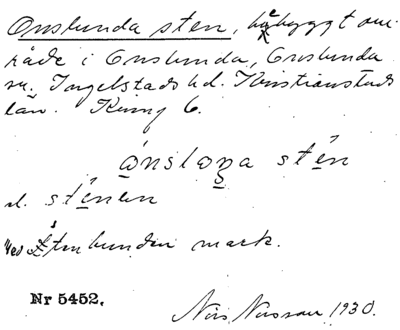 Onslunda sten, bebyggt om-
råde i Onslunda, Onslunda
sn. Ingelstads hd. Kristianstads
län. Kring 6.
ónsloŋa stén
el. sténen
Ved Stenbunden mark.
Nr 5452.
Nils Nilsson 1930.